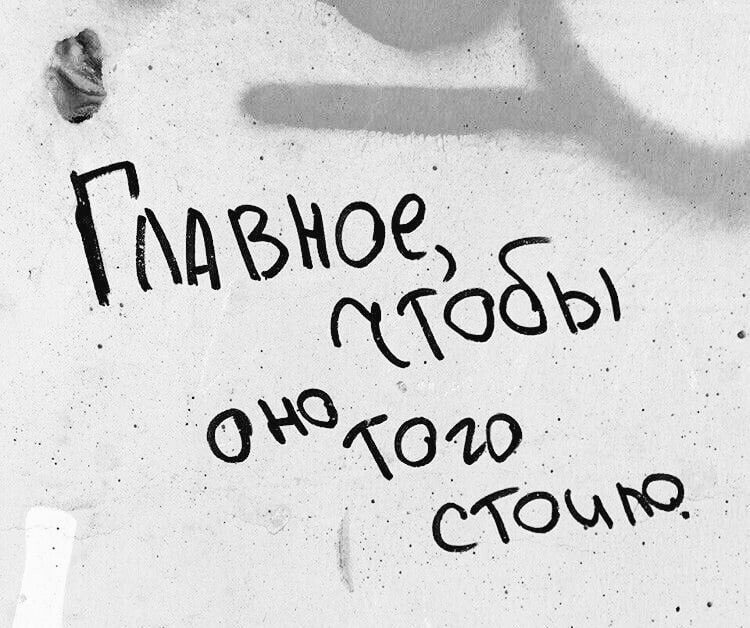 Главное,
чтобы
оно того
стоило.